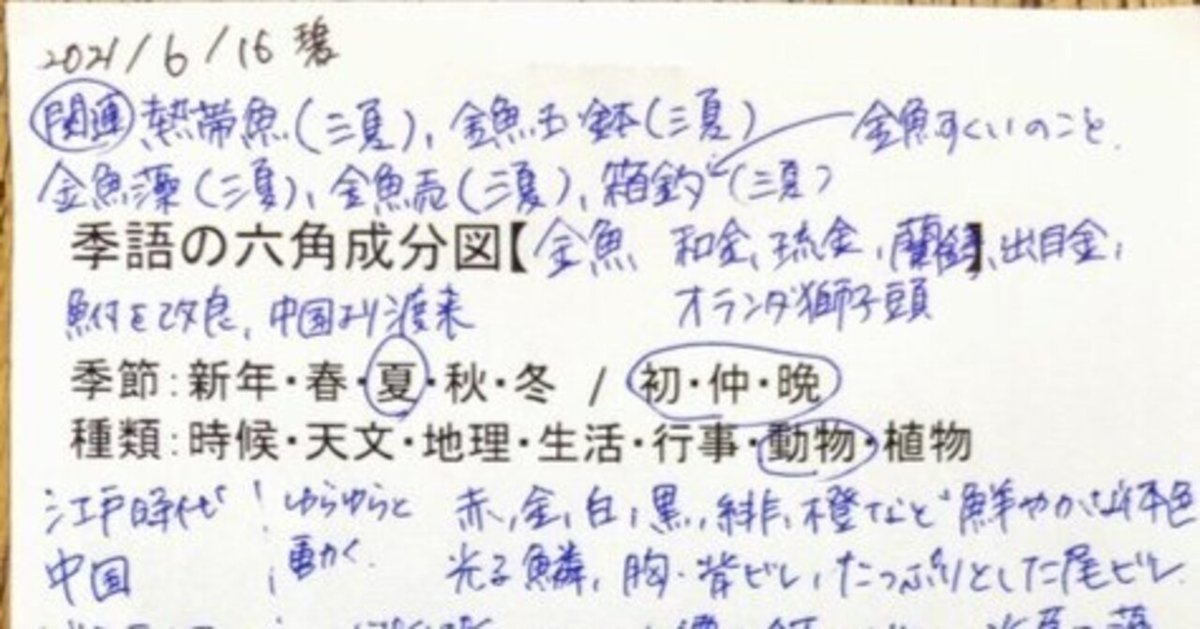 2021/6/16 碧
関連 熱帯魚(三夏)、金魚玉・鉢(三夏) 金魚すくいのこと。
金魚藻(三夏)、金魚売(三夏)、箱釣(三夏)
季語の六角成分図【金魚 和金、琉金、蘭鋳】、出目金、
鮒を改良、中国より渡来 オランダ獅子頭
季節:新年・春・夏・秋・冬 / 初・仲・晩
種類:時候・天文・地理・生活・行事・動物・植物
江戸時代 ゆらゆらと 赤、金、白、黒、緋、橙など鮮やかな体色
中国 動く。 光る鱗、胸・背ビレ、たっぷりとした尾ビレ